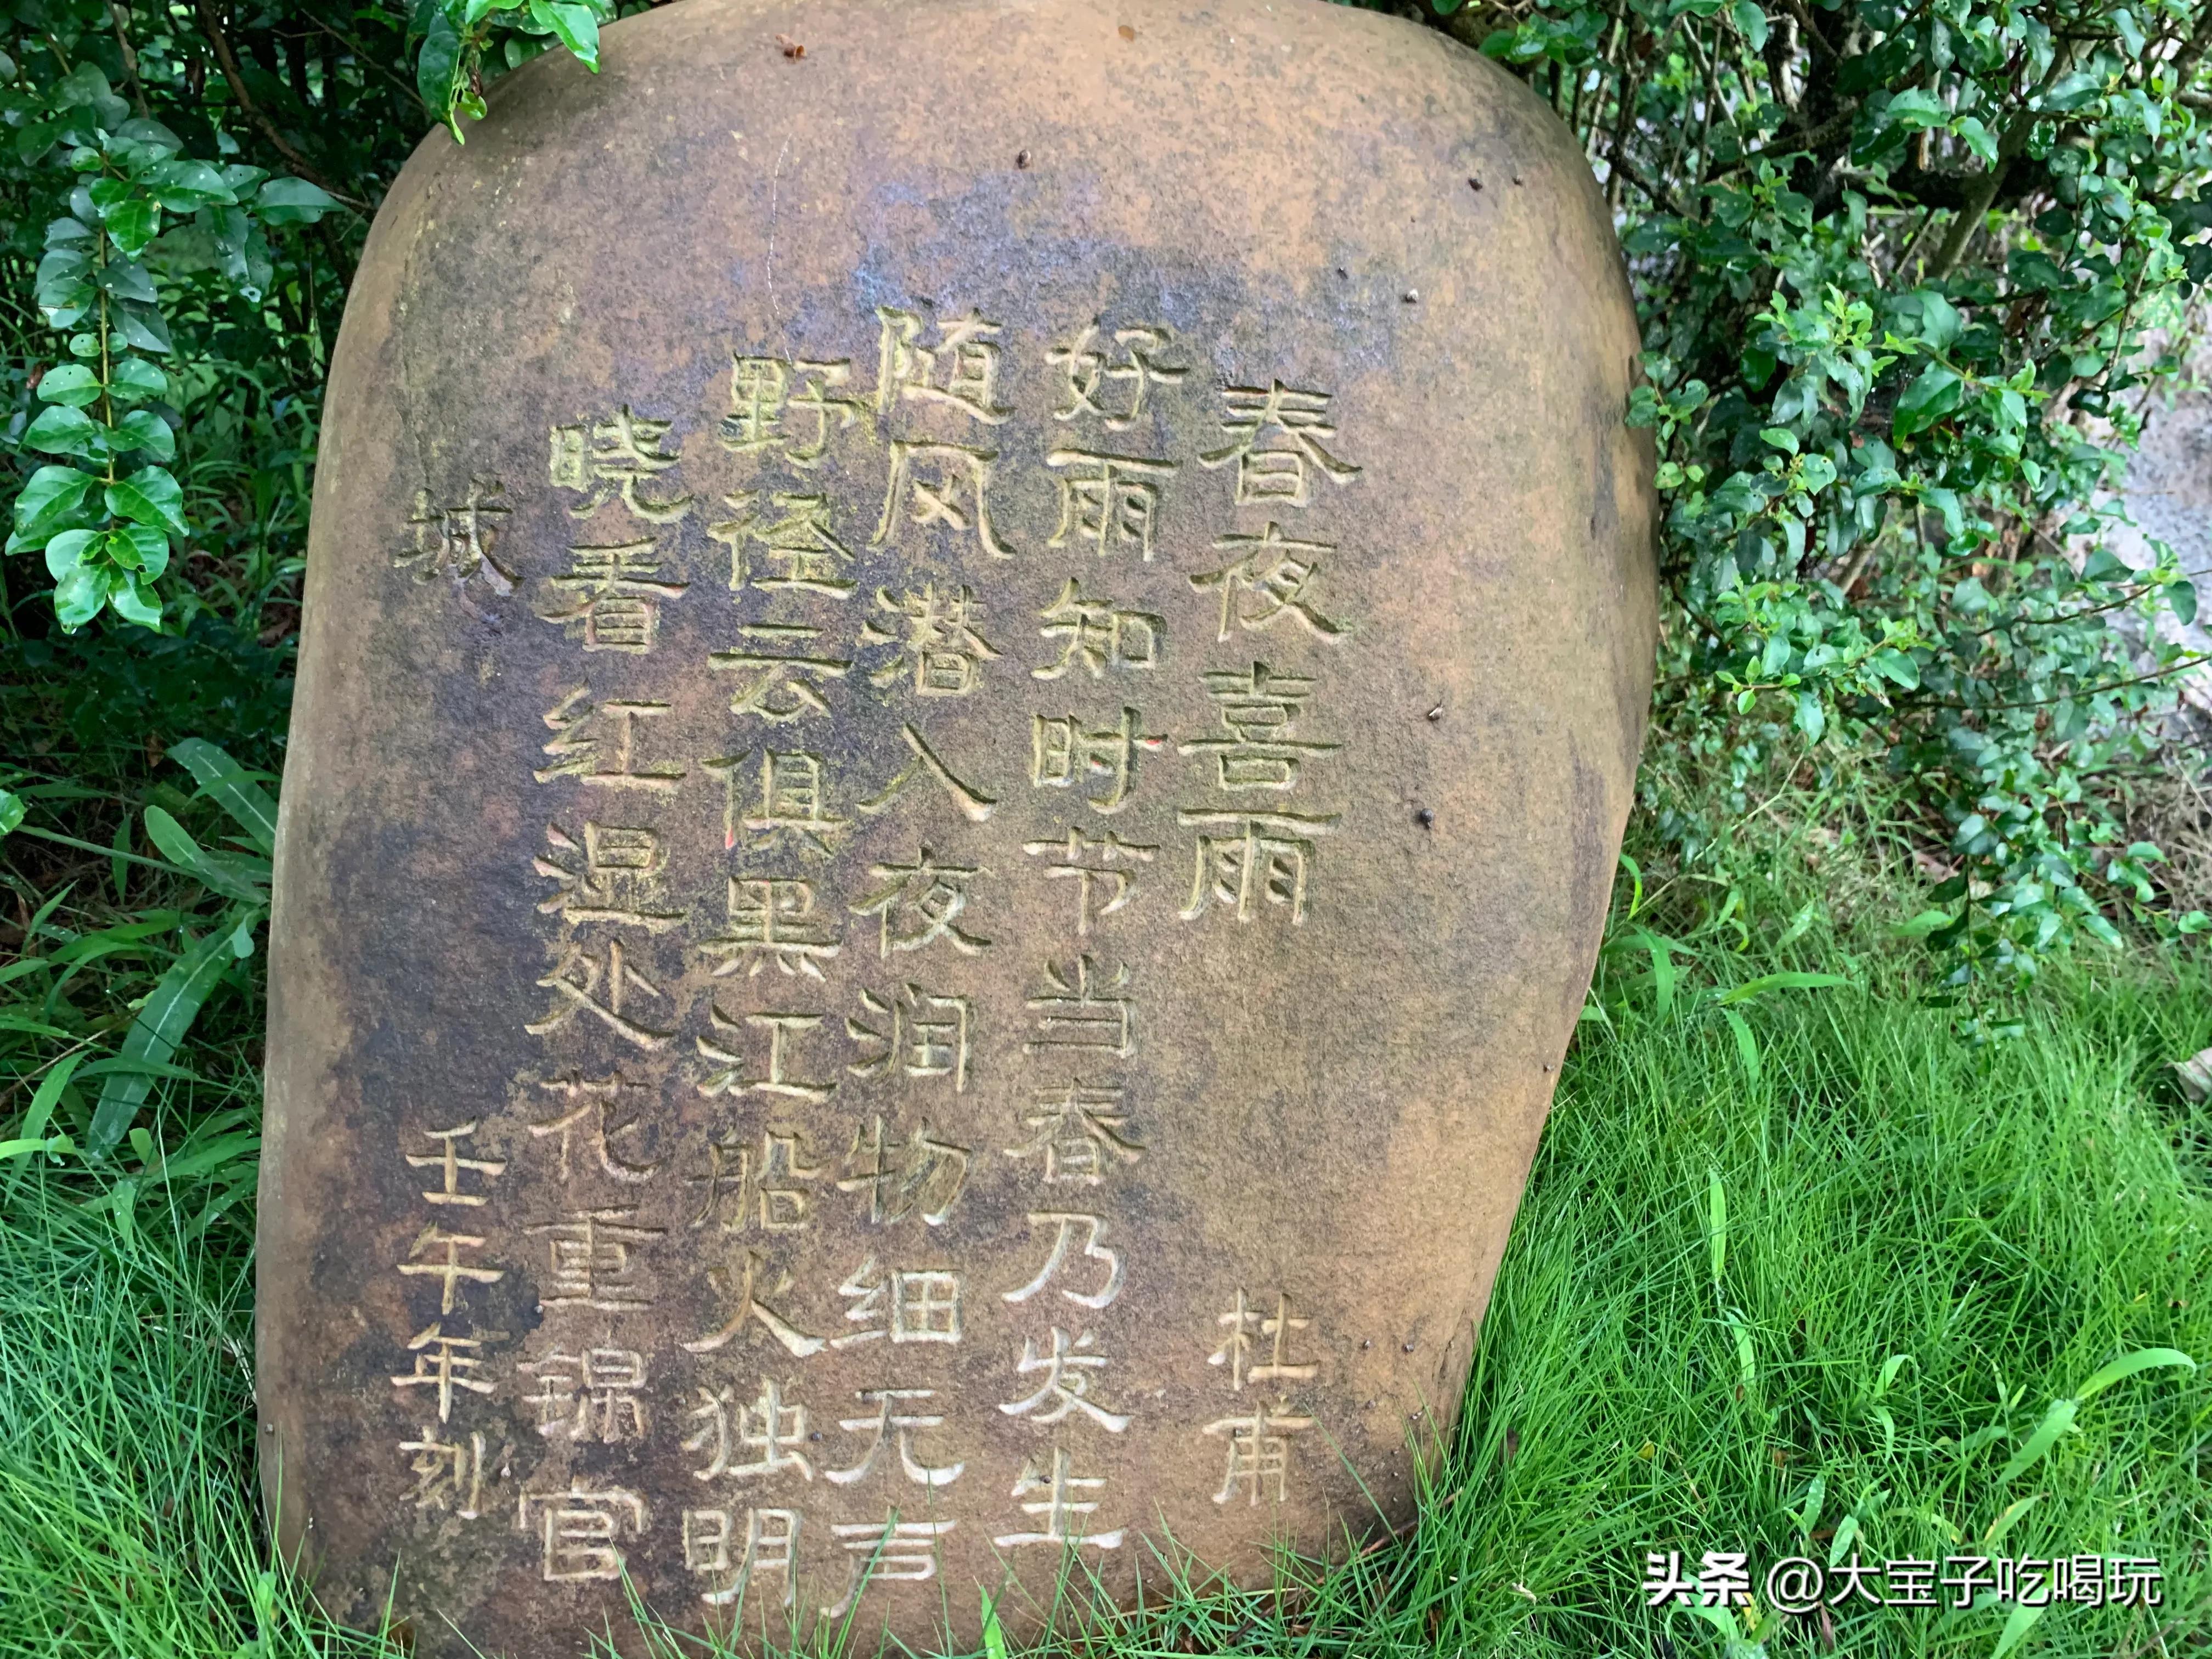 春夜喜雨 杜甫
好雨知时节当春乃发生
随风潜入夜润物细无声
野径云俱黑江船火独明
晓看红湿处花重锦官
城 壬午年刻
头条 @大宝子吃喝玩